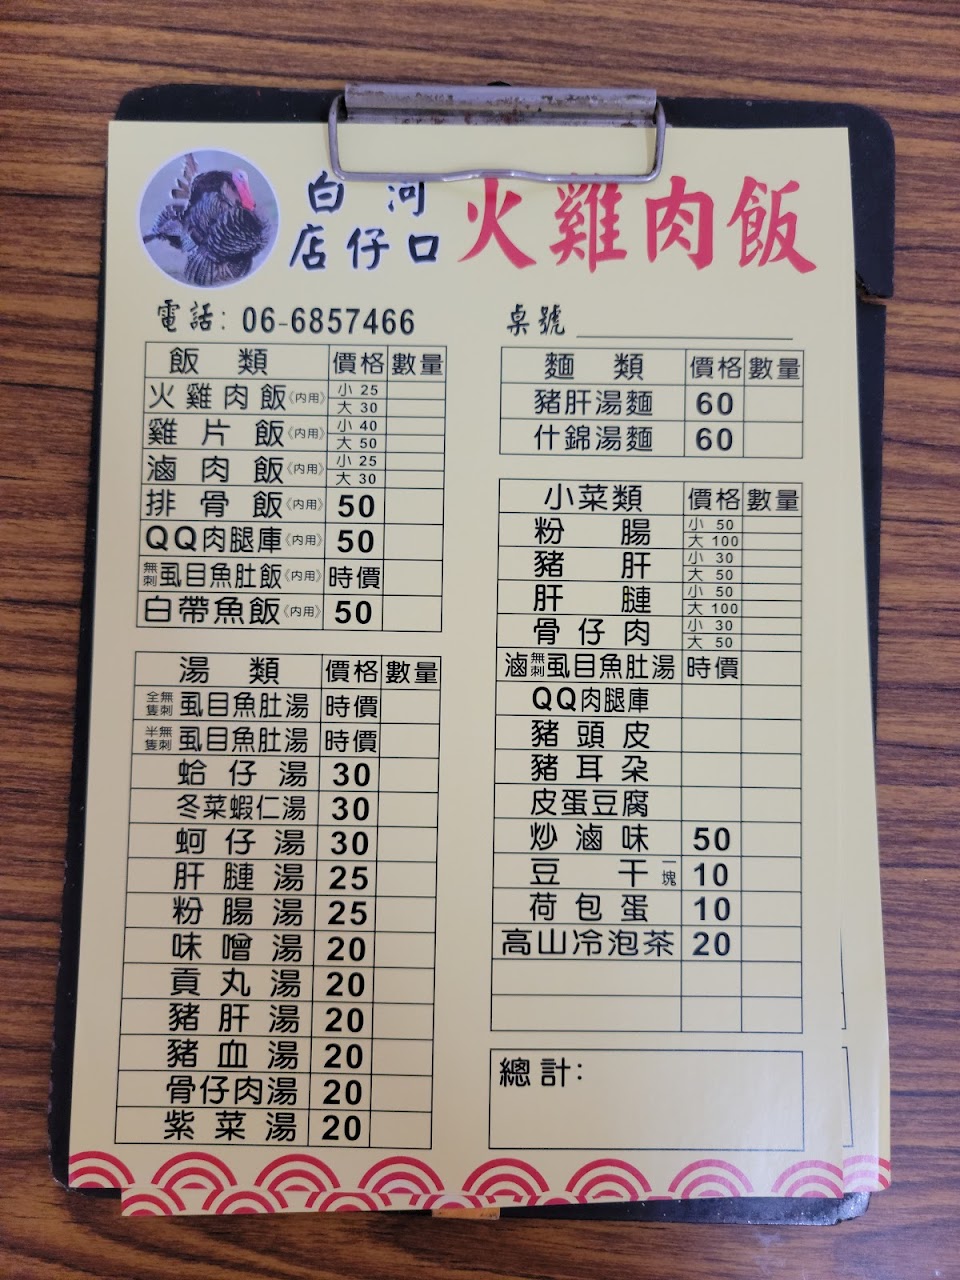 白河
店仔口
火雞肉飯
電話: 06-6857466
桌號
飯類 價格 數量
火雞肉飯《內用》 小 25 大 30
雞片飯《內用》 小 40 大 50
滷肉飯《內用》 小 25 大 30
排骨飯《內用》 50
QQ肉腿庫《內用》 50
無刺虱目魚肚飯《內用》 時價
白帶魚飯《內用》 50
湯類 價格 數量
全隻無刺虱目魚肚湯 時價
半隻無刺虱目魚肚湯 時價
蛤仔湯 30
冬菜蝦仁湯 30
蚵仔湯 30
肝腱湯 25
粉腸湯 25
味噌湯 20
貢丸湯 20
豬肝湯 20
豬血湯 20
骨仔肉湯 20
紫菜湯 20
麵類 價格 數量
豬肝湯麵 60
什錦湯麵 60
小菜類 價格 數量
粉腸 小 50 大 100
豬肝 小 30 大 50
肝腱 小 50 大 100
骨仔肉 小 30 大 50
滷無刺虱目魚肚湯 時價
QQ肉腿庫
豬頭皮
豬耳朵
皮蛋豆腐
炒滷味 50
豆干一塊 10
荷包蛋 10
高山冷泡茶 20
總計: